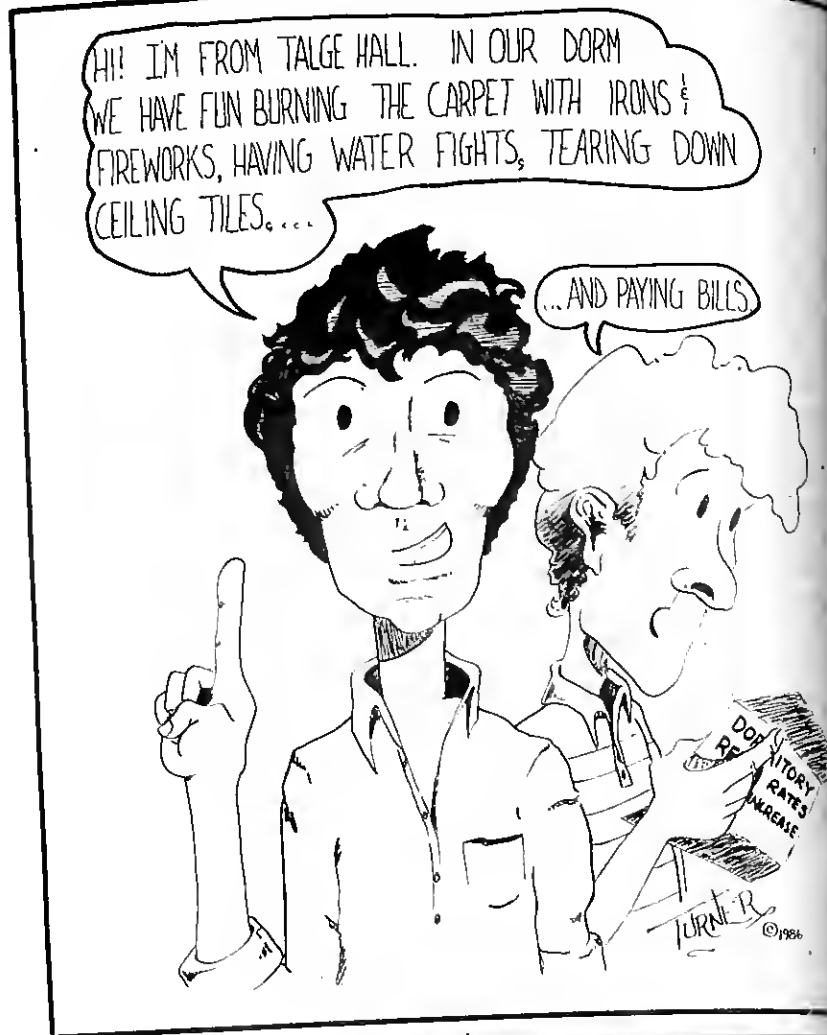 HI! I'M FROM TALGE HALL. IN OUR DORM
WE HAVE FUN BURNING THE CARPET WITH IRONS &
FIREWORKS, HAVING WATER FIGHTS, TEARING DOWN
CEILING TILES....
...AND PAYING BILLS.
DORMITORY
RATES
INCREASE
TURNER
©1986